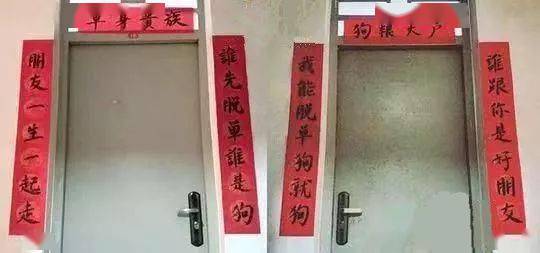 单身贵族
朋友一生一起走
誰先脱单誰是狗
狗粮大户
我能脱单狗就狗
誰跟你是好朋友